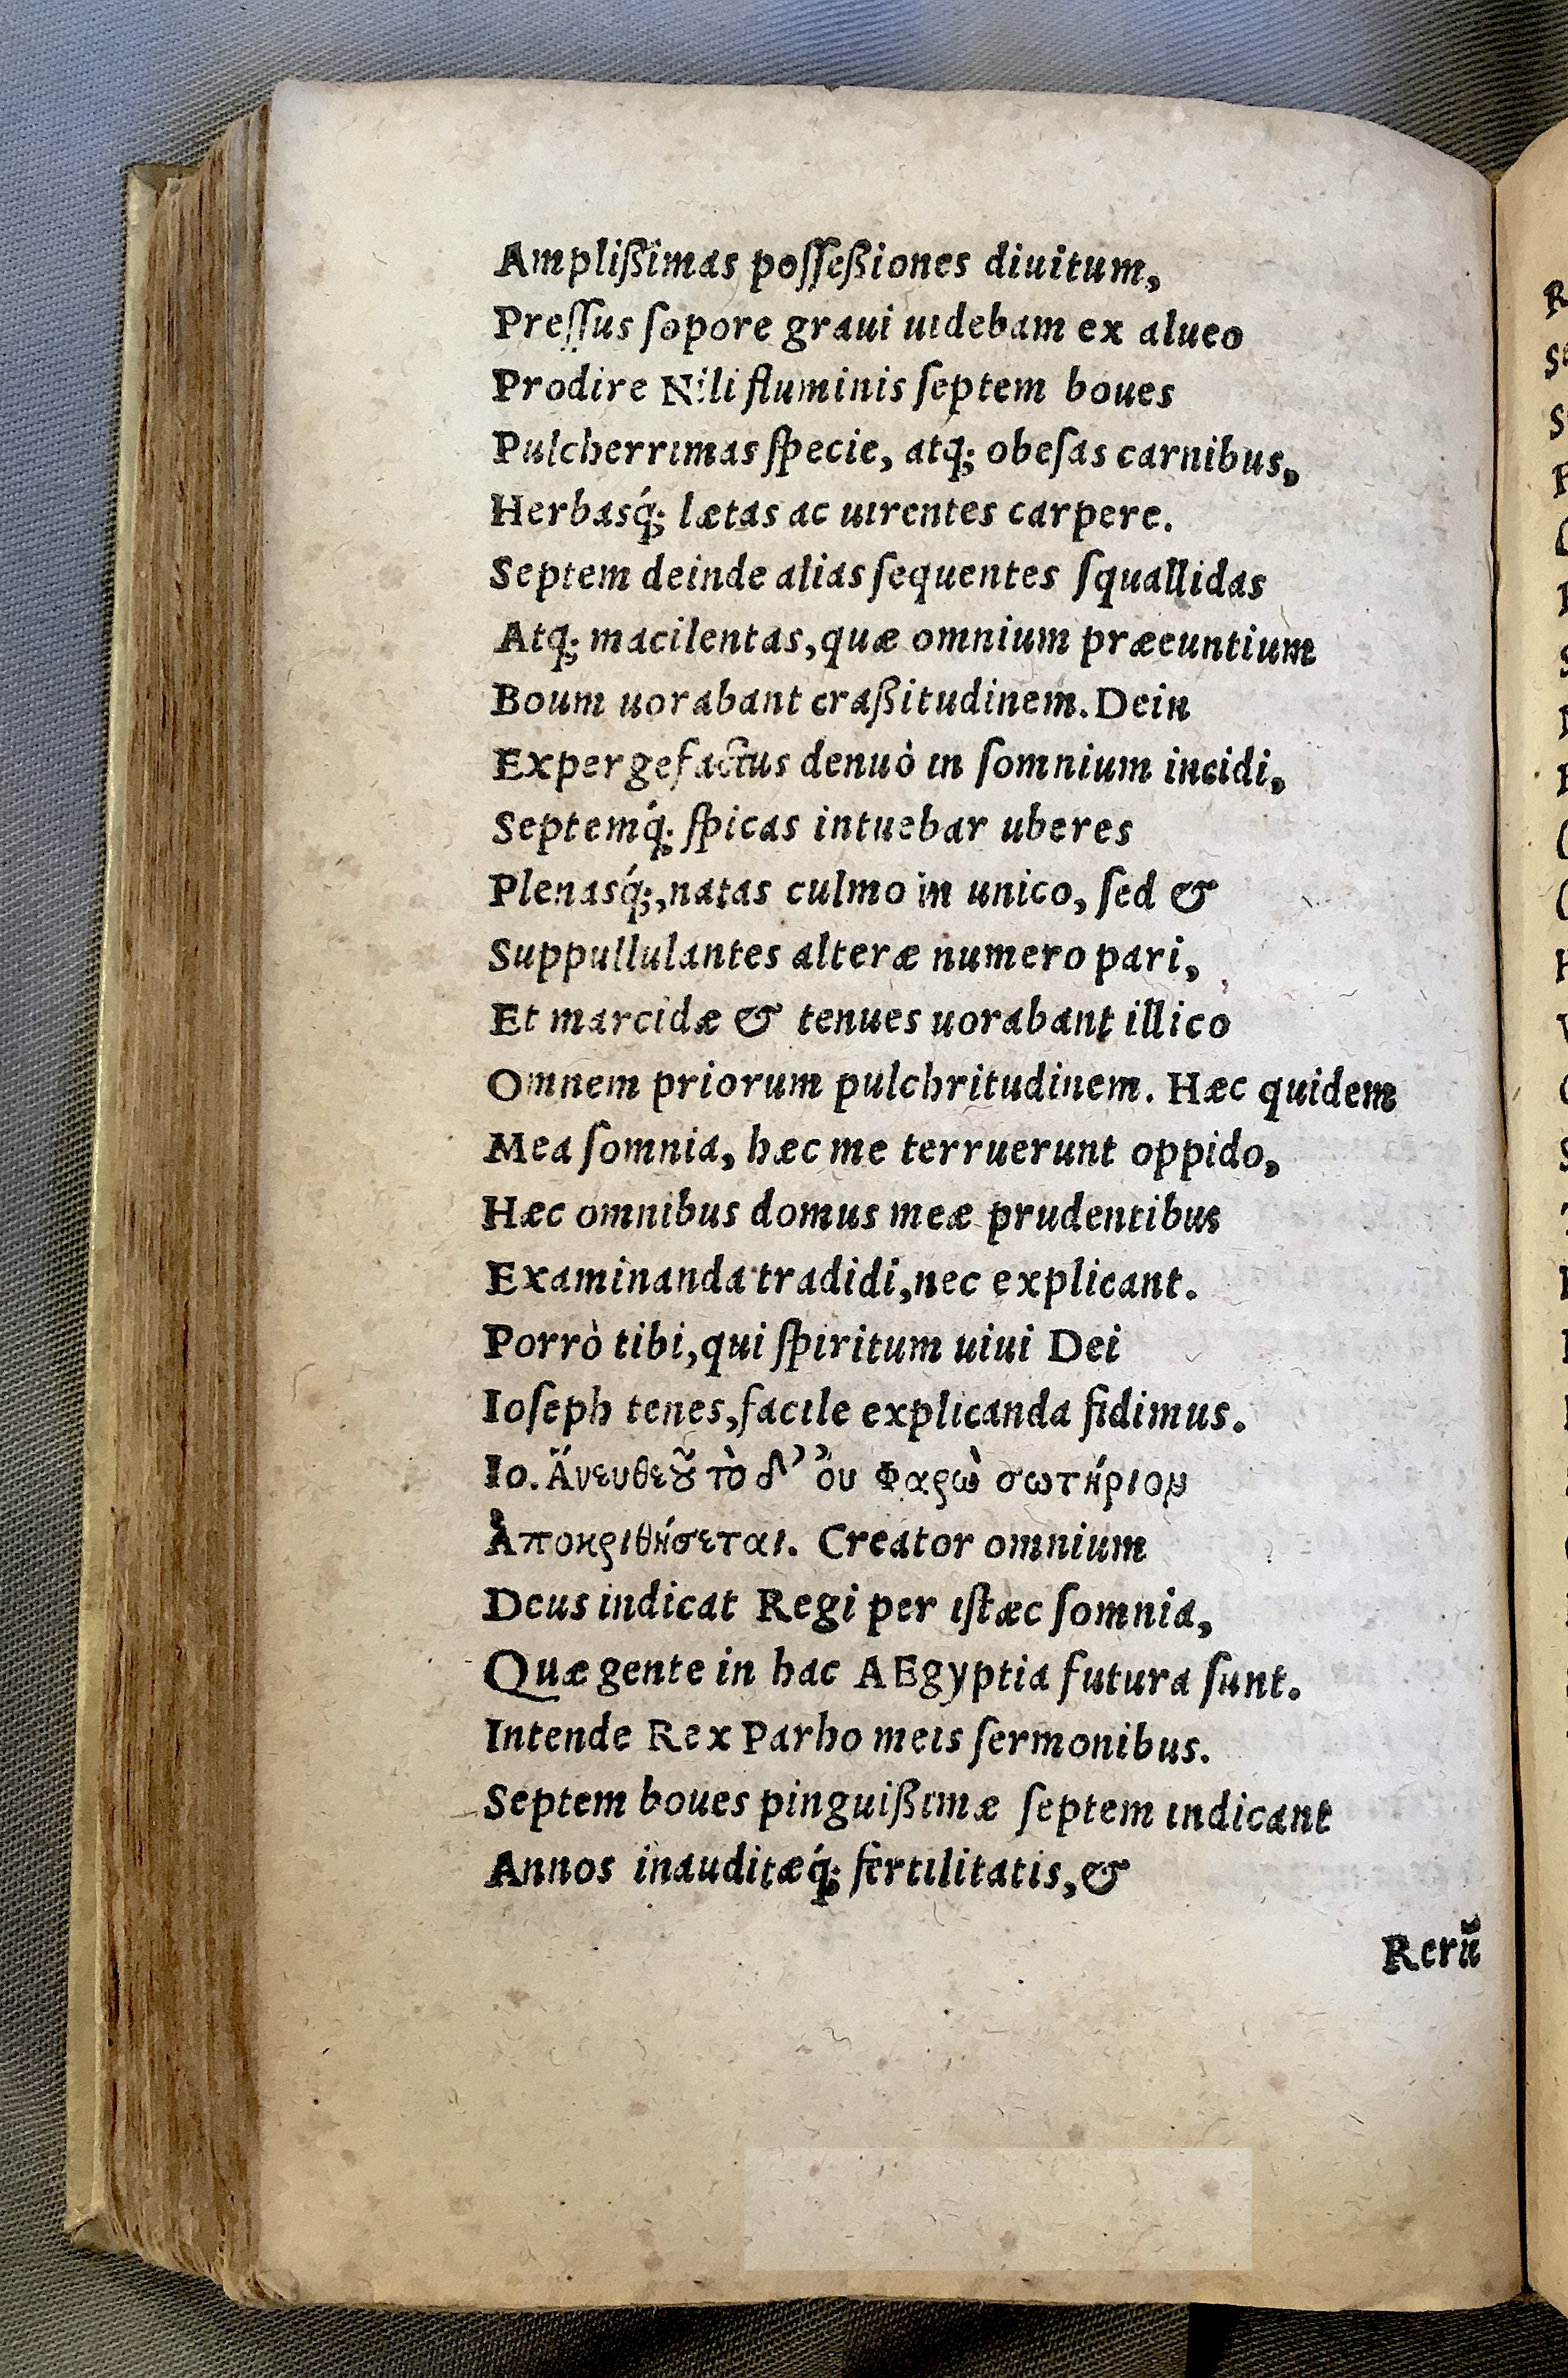 Amplißimas poſſeßiones diuitum,
Preſſus ſopore graui uidebam ex alueo
Prodire Nili fluminis ſeptem boues
Pulcherrimas ſpecie, atq; obeſas carnibus,
Herbasq́; lætas ac uirentes carpere.
Septem deinde alias ſequentes ſquallidas
Atq; macilentas, quæ omnium præeuntium
Boum uorabant craßitudinem. Dein
Expergefactus denuò in ſomnium incidi,
Septemq́; ſpicas intuebar uberes
Plenasq́;, natas culmo in unico, ſed &
Suppullulantes alteræ numero pari,
Et marcidæ & tenues uorabant illico
Omnem priorum pulchritudinem. Hæc quidem
Mea ſomnia, hæc me terruerunt oppido,
Hæc omnibus domus meæ prudentibus
Examinanda tradidi, nec explicant.
Porrò tibi, qui ſpiritum uiui Dei
Ioſeph tenes, facile explicanda fidimus.
Io. Ἄνευθεȣ̃ τὸ δ’ ὂυ Φαρὼ σωτήριον
Ἀποκριθήσεται. Creator omnium
Deus indicat Regi per iſtæc ſomnia,
Quæ gente in hac AEgyptia futura ſunt.
Intende Rex Parho meis ſermonibus.
Septem boues pinguißimæ ſeptem indicant
Annos inauditæq́; fertilitatis, &
Rerũ